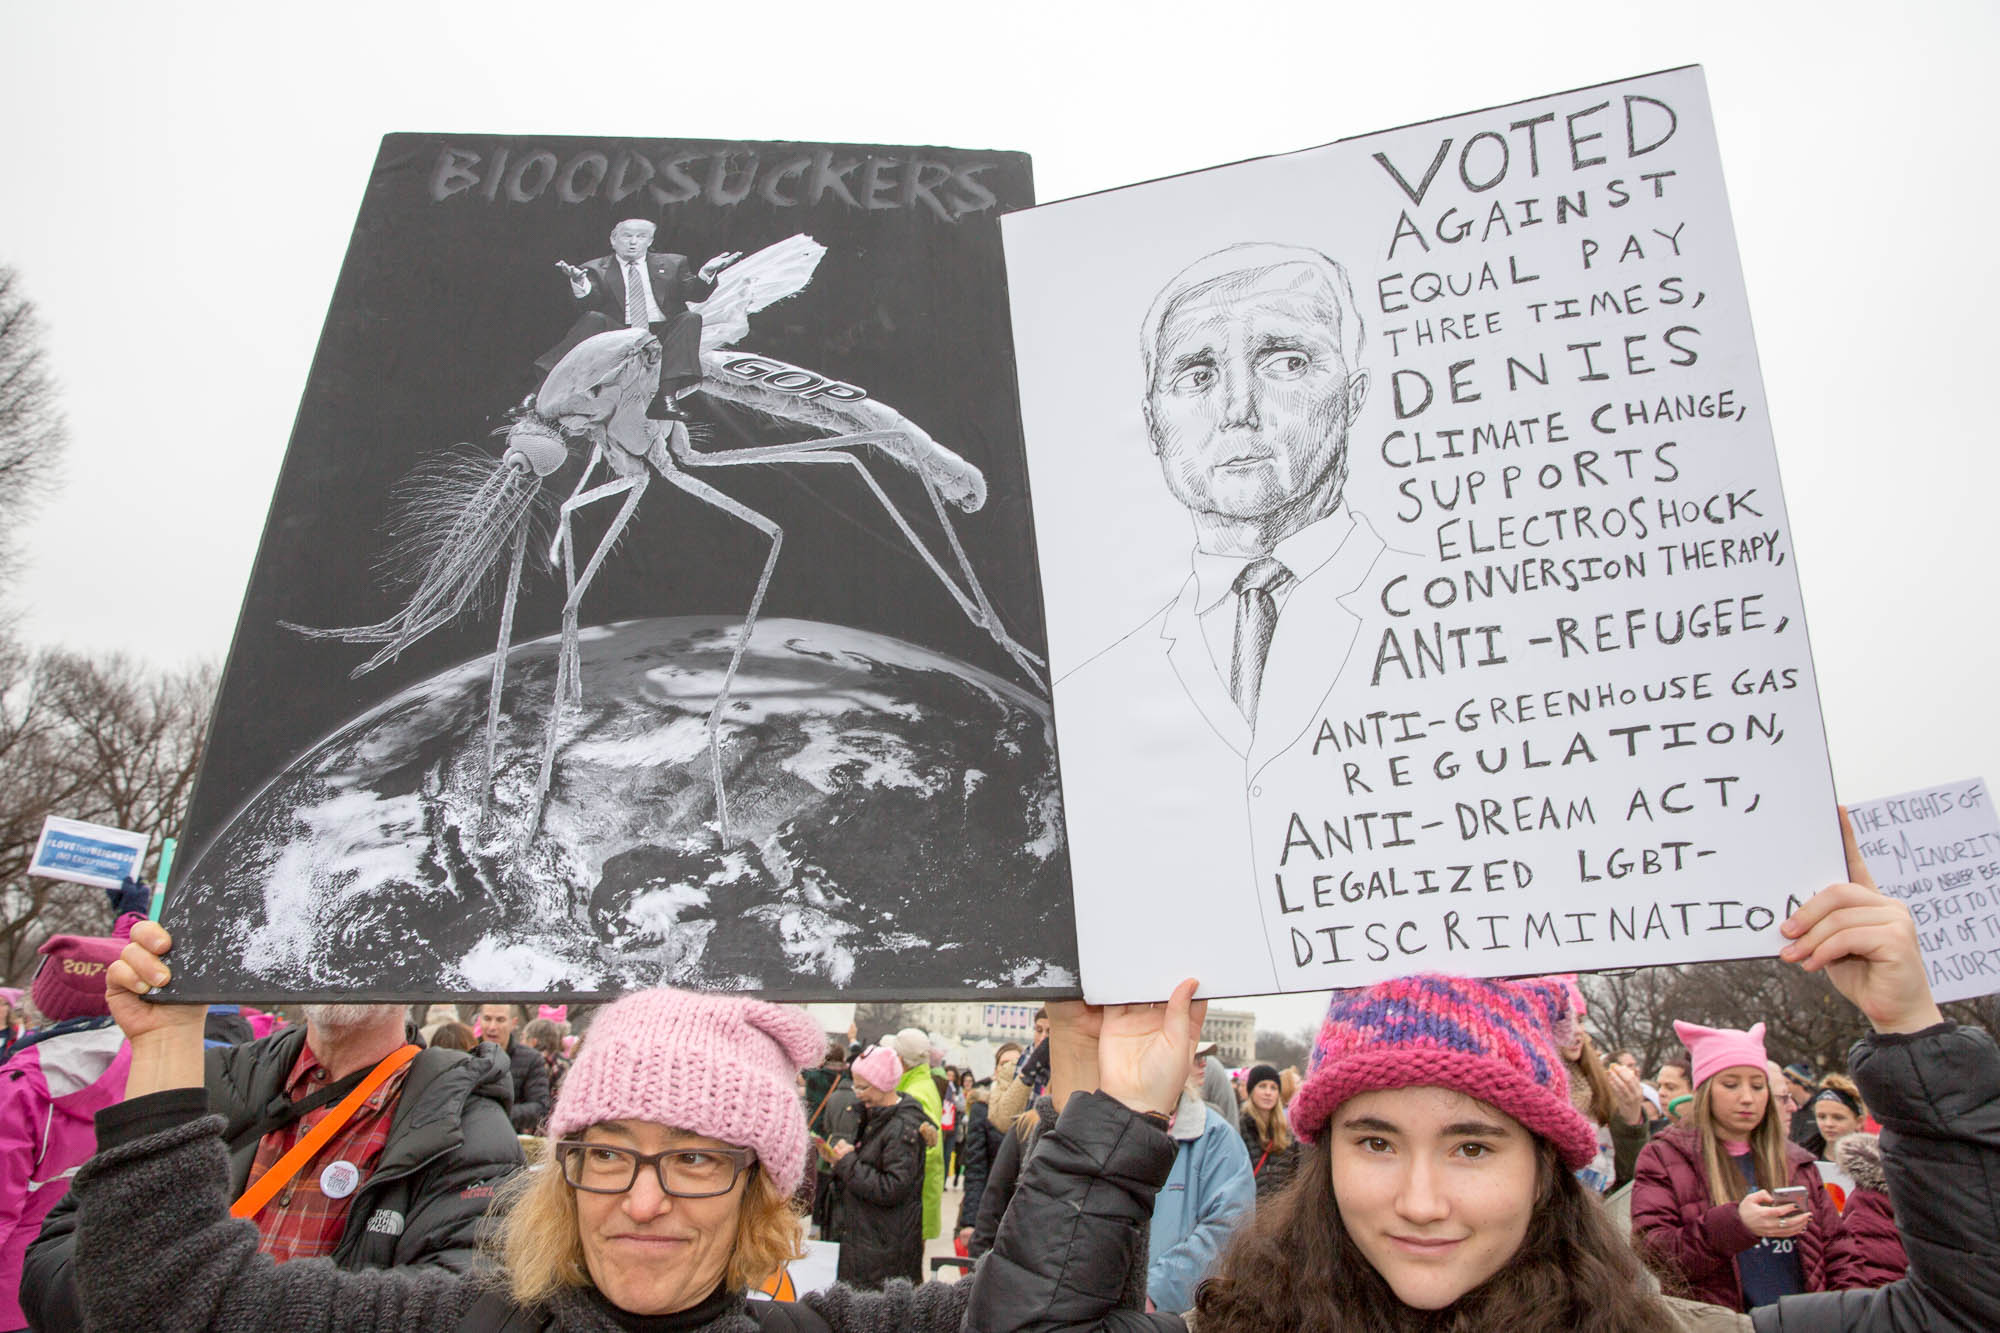 BlOODSUCKERS
GOP
VOTED
AGAINST
EQUAL PAY
THREE TIMES,
DENIES
CLIMATE CHANGE,
SUPPORTS
ELECTROSHOCK
CONVERSION THERAPY,
ANTI-REFUGEE,
ANTI-GREENHOUSE GAS
REGULATION,
ANTI-DREAM ACT,
LEGALIZED LGBT-
DISCRIMINATION
#LOVETHYNEIGHBOR
(NO EXCEPTIONS)
THE RIGHTS OF
THE MINORITY
SHOULD NEVER BE
SUBJECT TO TH
WHIM OF TH
MAJORIT
2017
THE
NORTH
FACE
20